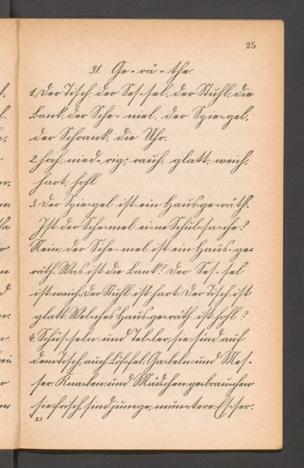 25
31. Ge-rä-the.
1. Der Tisch, der Ses-sel, der Stuhl, die
Bank, der Sche-mel, der Spie-gel,
der Schrank, die Uhr.
2. hoch, nied-rig, rauh, glatt, weich,
hart, hohl.
3. Der Spie-gel ist ein Hausge-räth.
Ist der Sche-mel eine Schulsa-che?
Nein, der Sche-mel ist ein Haus-ge-
räth. Was ist die Bank? Der Ses-sel
ist weich. Der Stuhl ist hart. Der Tisch ist
glatt. Welches Hausge-räth ist hohl?
4. Schüs-seln und Tel-ler, sie sind auf
dem Tisch, auch Löf-fel, Ga-beln und Mes-
ser. Kna-ben und Mädchen gebrauchen
sie frisch, sind jun-ge, mun-tere Es-ser.